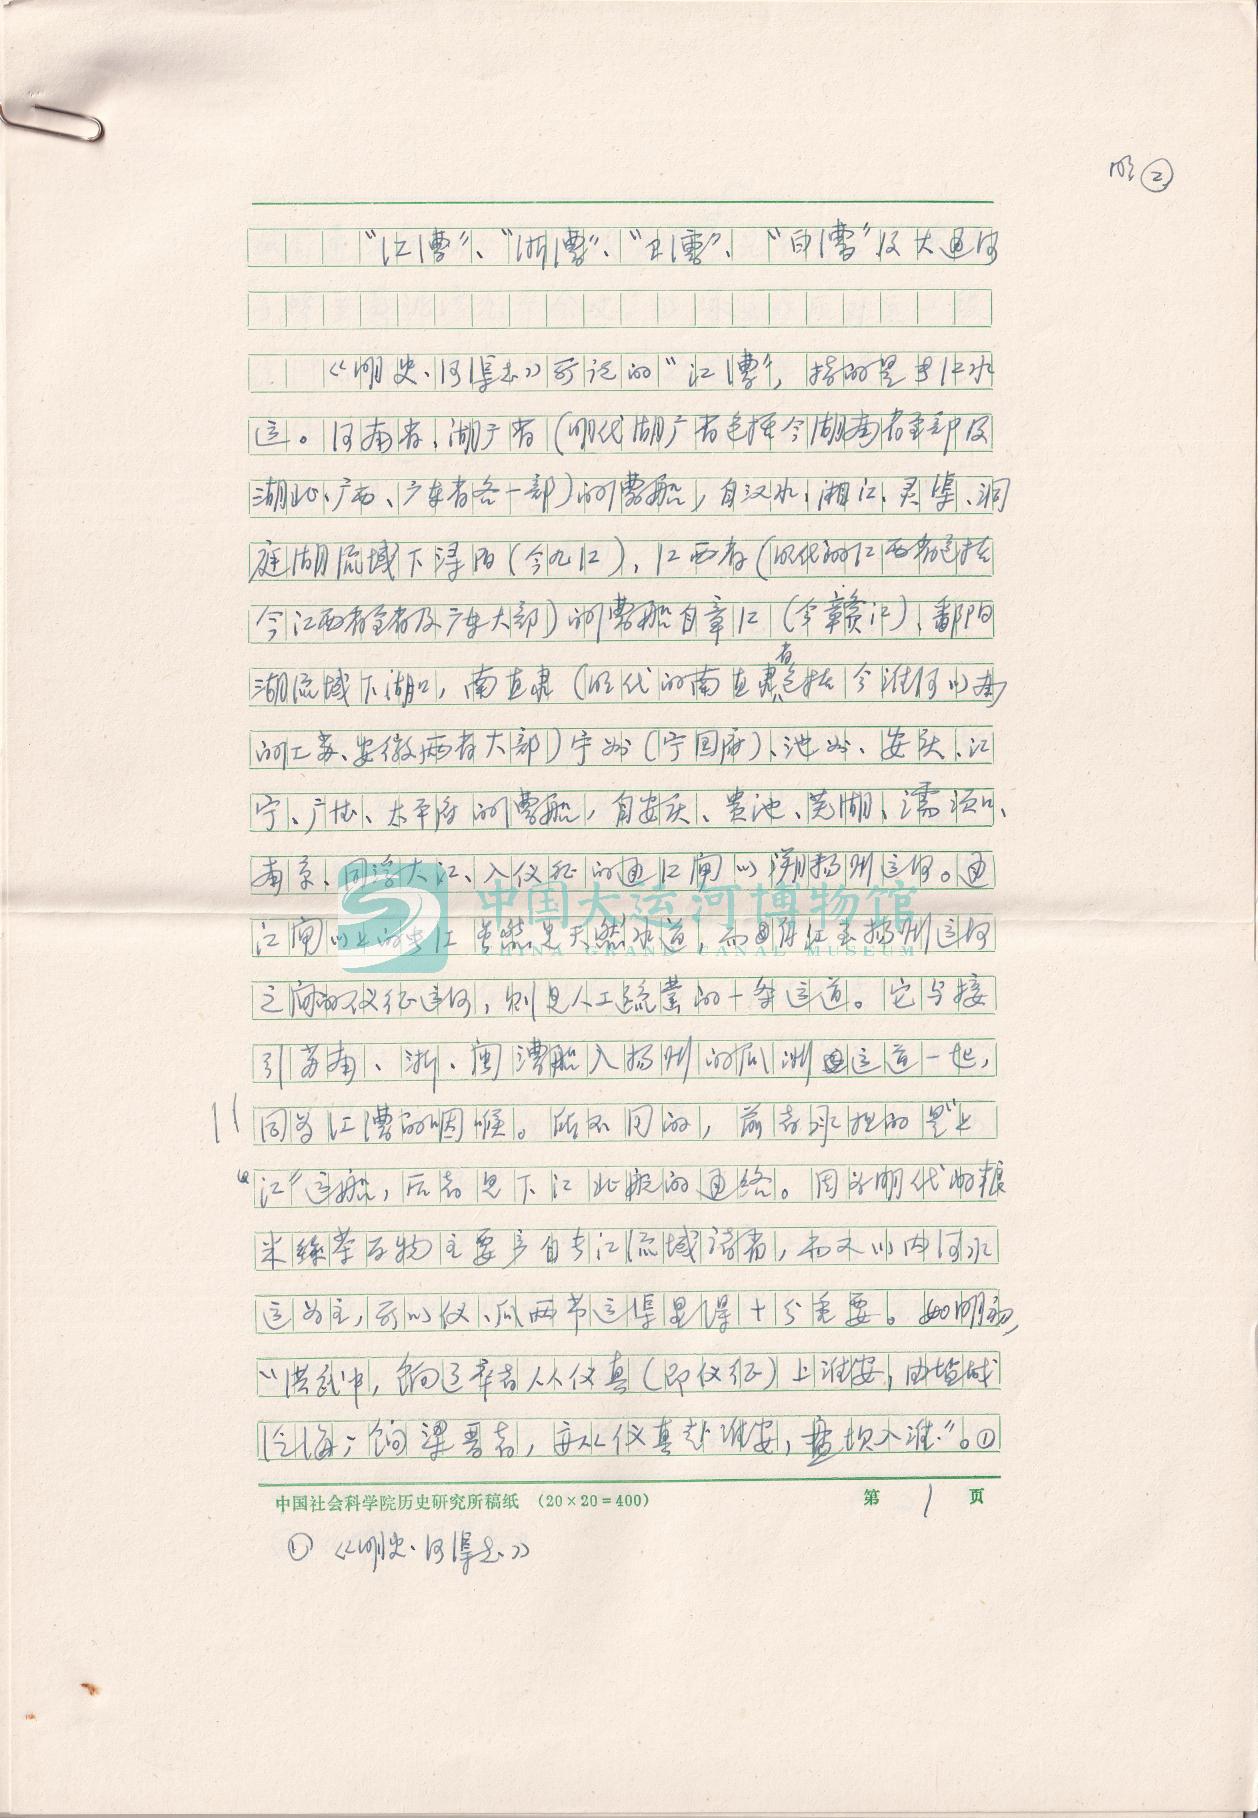 明②
“江漕”、“浙漕”、“卫漕”、“白漕”及大通河
《明史·河渠志》所说的“江漕”，指的是长江水
运。河南省、湖广省（明代湖广省包括今湖南省全部及
湖北、广西、广东省各一部）的漕船，自汉水、湘江、灵渠、洞
庭湖流域下浔阳（今九江），江西省（明代的江西省包括
今江西省全省及广东大部）的漕船自章江（今赣江）、鄱阳
湖流域下湖口，南直隶省（明代的南直隶包括今淮河以南
的江苏、安徽两省大部）宁州（宁国府）、池州、安庆、江
宁、广德、太平府的漕船，自安庆、贵池、芜湖、濡须口、
南京、同浮大江、入仪征的通江闸以溯扬州运河。通
江闸以上的长江当然是天然水道，而自仪征至扬州运河
之间的仪征运河，则是人工疏凿的一条运道。它与接
引苏南、浙、闽漕船入扬州的瓜洲运道一起，
同为江漕的咽喉。所不同的，前者承担的是“上
江”运船，后者是下江北般的通络。因为明代的粮
米丝茶百物主要产自长江流域诸省，而又以内河水
运为主，所以仪、瓜两节运渠显得十分重要。如明初，
“洪武中，饷辽卒者从仪真（即仪征）上淮安，由盐城
汎海；饷梁晋者，亦从仪真赴淮安，盘坝入淮。”①
中国社会科学院历史研究所稿纸 （20×20=400） 第 1 页
① 《明史·河渠志》
中国大运河博物馆
CHINA GRAND CANAL MUSEUM